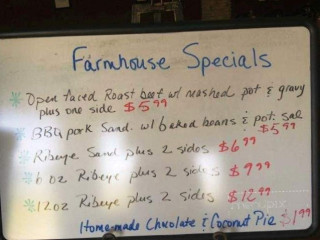 Farmhouse Specials
Open faced Roast beef w/ mashed pot & gravy
plus one side $5.99
BBQ pork Sand. w/ baked beans & pot. sal
$5.99
Ribeye Sand plus 2 sides $6.99
6 oz Ribeye plus 2 sides $9.99
12oz Ribeye plus 2 sides $12.99
Homemade Chocolate & Coconut Pie $1.99